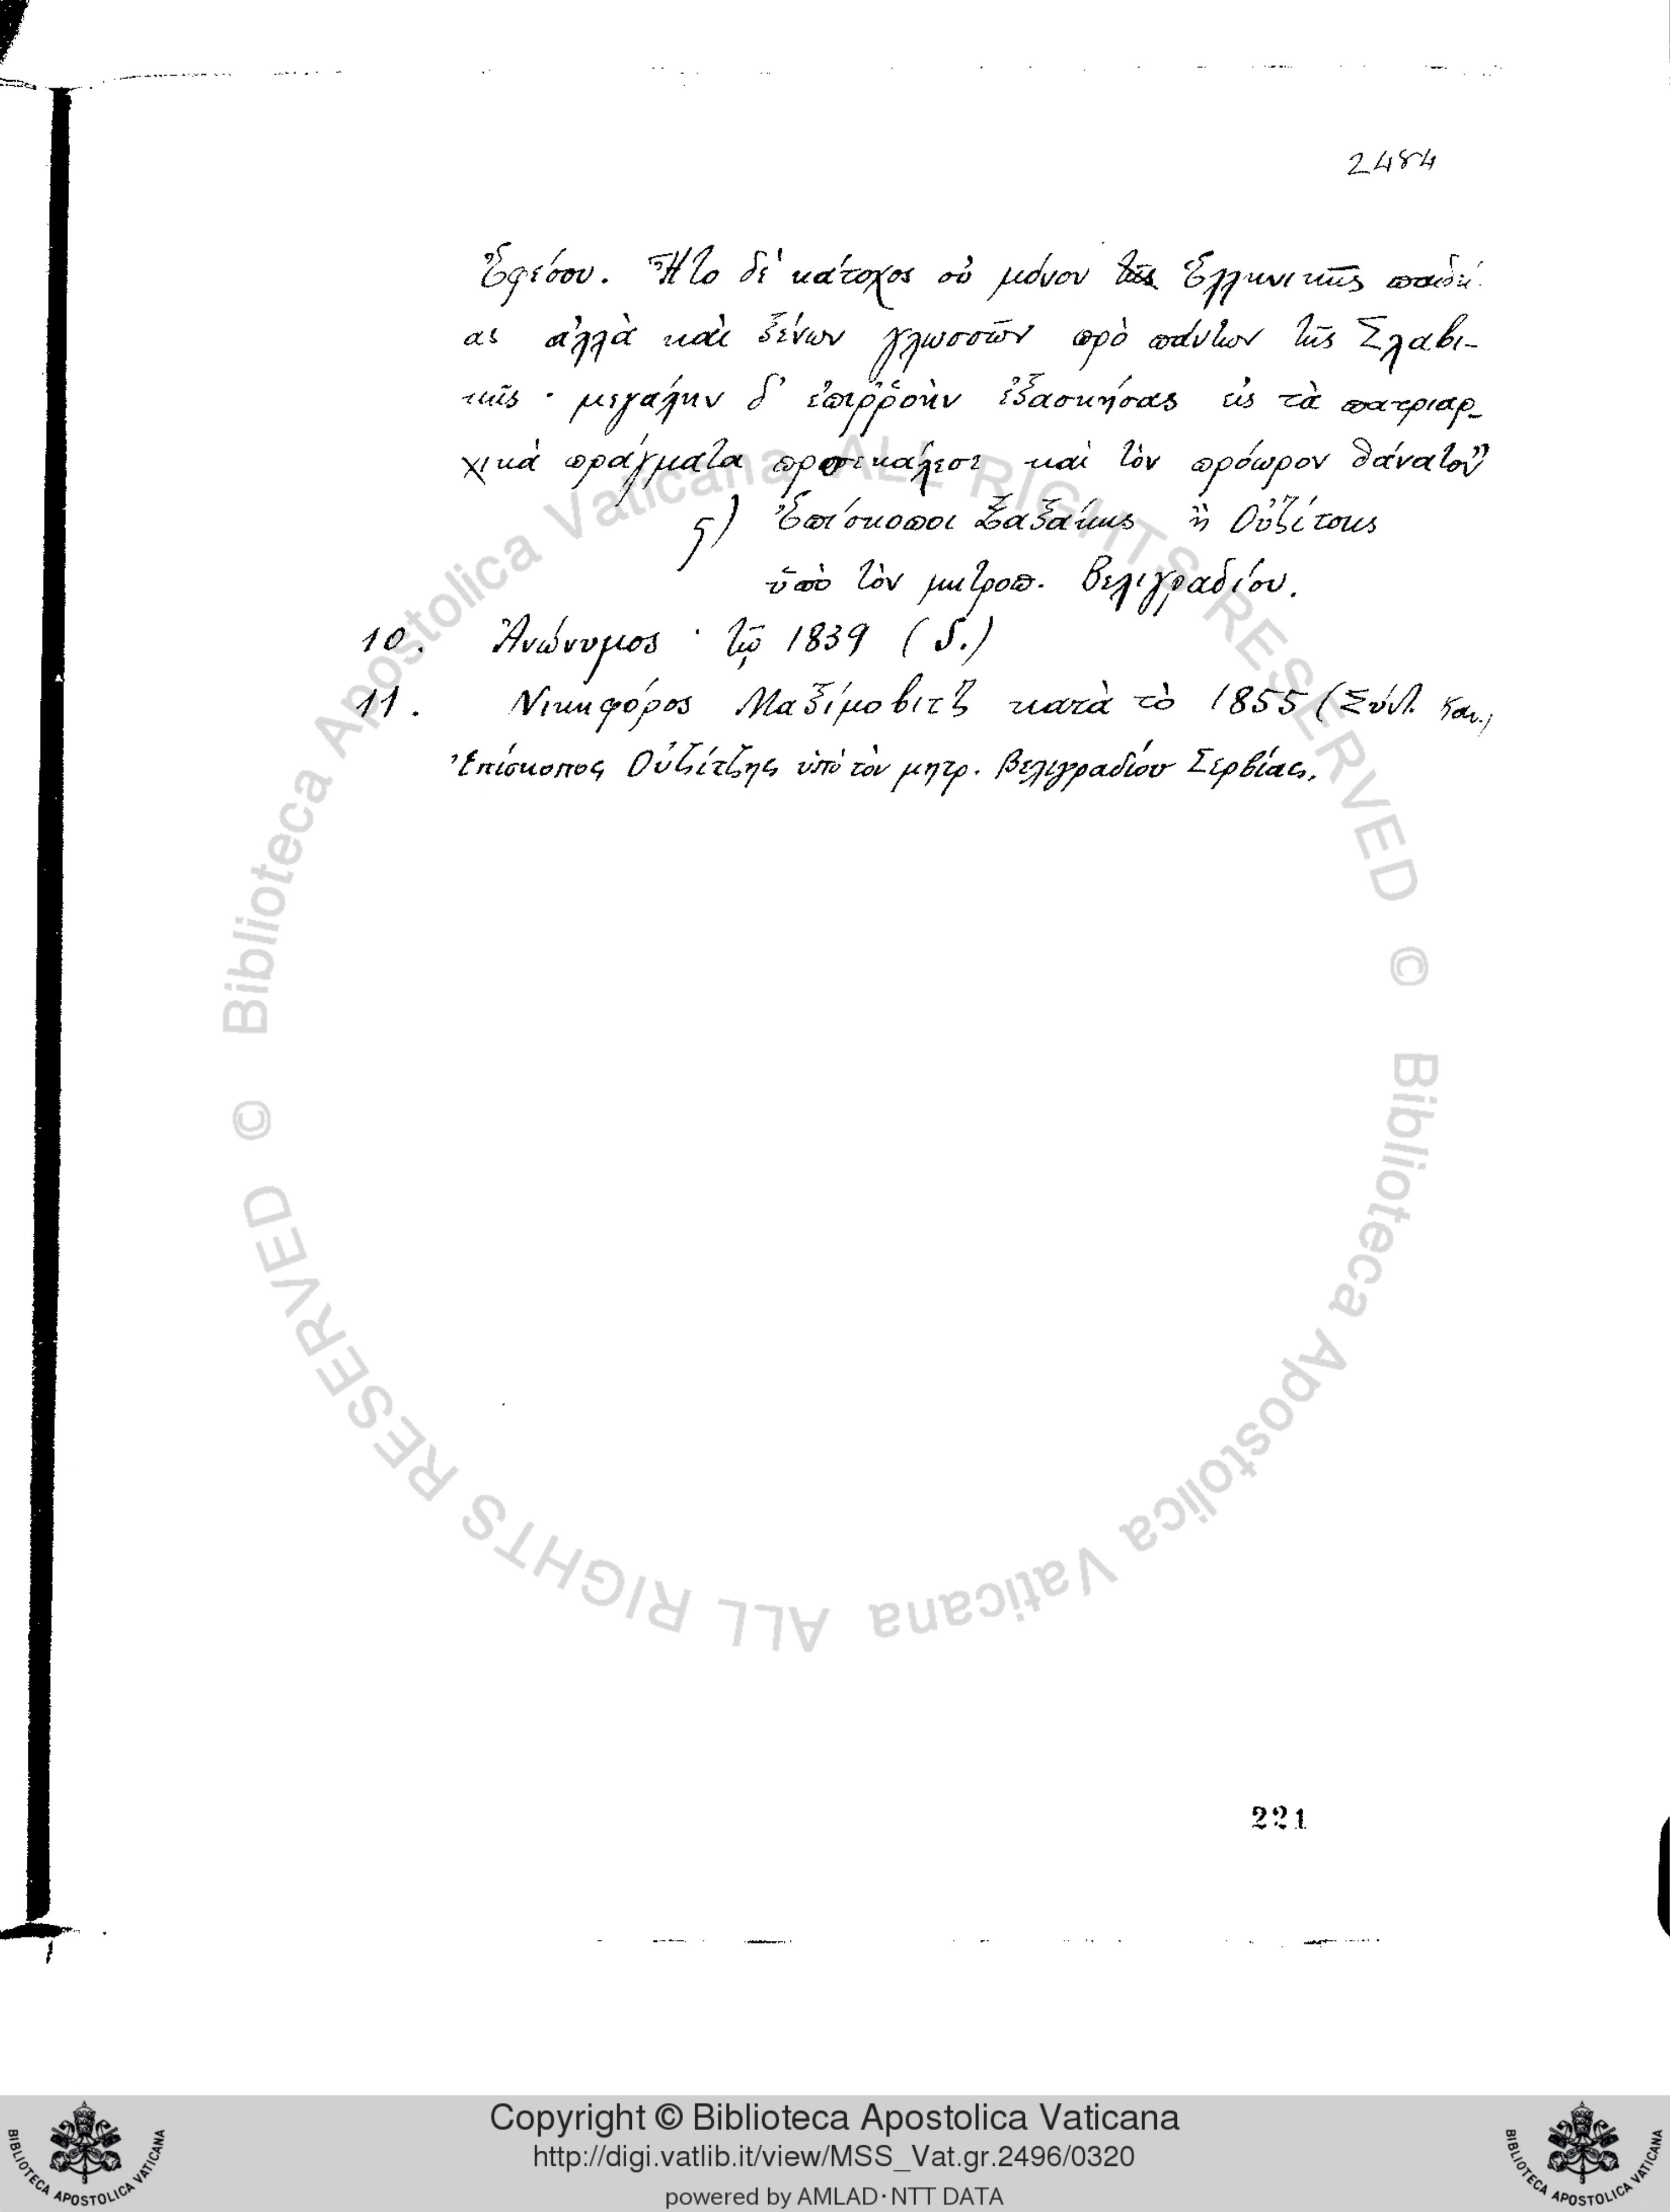 2484
Ἐφέσου. Ἦτο δὲ κάτοχος οὐ μόνον τῆς Ἑλληνικῆς παιδεί
ας ἀλλὰ καὶ ξένων γλωσσῶν πρὸ πάντων τῆς Σλαβι-
κῆς · μεγάλην δ' ἐπιῤῥοὴν ἐξασκήσας εἰς τὰ πατριαρ-
χικά πράγματα προσεκάλεσε καὶ τὸν πρόωρον θάνατον
ς) Ἐπίσκοποι Ξαξάκης ἢ Οὐζίτσης
ὑπὸ τὸν μητροπ. Βελιγραδίου.
10. Ἀνώνυμος · τῷ 1839 (δ.)
11. Νικηφόρος Μαξίμοβιτζ κατὰ τὸ 1855 (Σύντ. Καν.,
Ἐπίσκοπος Οὐζίτζης ὑπὸ τὸν μητρ. Βελιγραδίου Σερβίας.
221
© Biblioteca Apostolica Vaticana ALL RIGHTS RESERVED
© Biblioteca Apostolica Vaticana ALL RIGHTS RESERVED
Copyright © Biblioteca Apostolica Vaticana
http://digi.vatlib.it/view/MSS_Vat.gr.2496/0320
powered by AMLAD·NTT DATA
BIBLIOTECA APOSTOLICA VATICANA
BIBLIOTECA APOSTOLICA VATICANA